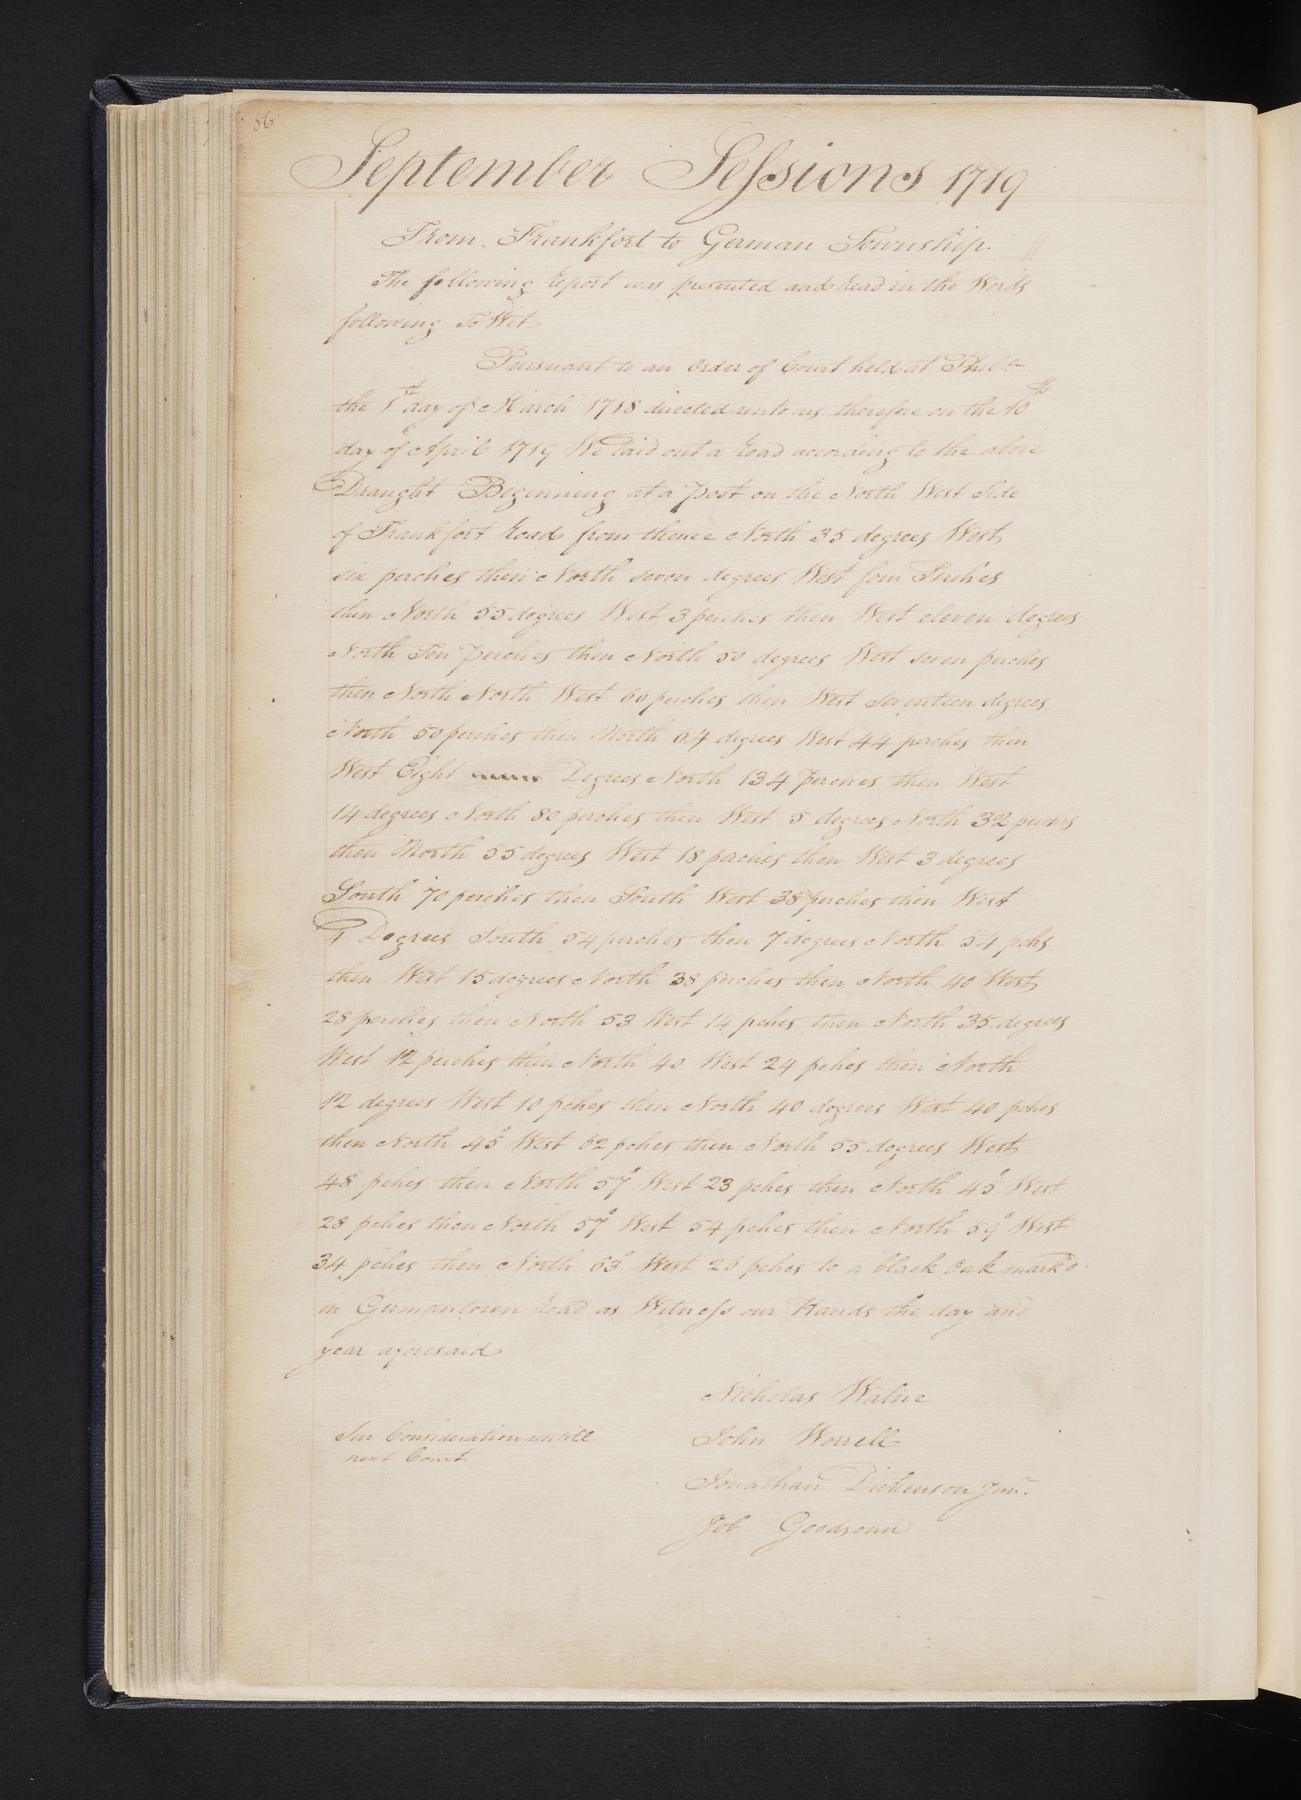 86
September Sessions 1719
From Frankfort to German Township.
The following report was presented and read in the Words
following To Wit
Pursuant to an order of Court held at Phil.a
the 1st day of March 1718 directed unto us therefore on the 10th
day of April 1719 We Laid out a road according to the above
Draught Beginning at a post on the North West Side
of Frankfort Road from thence North 35 degrees West
six perches then North seven degrees West four Perches
then North 55 degrees West 3 perches then West eleven degrees
North Ten perches then North 50 degrees West seven perches
then North North West 60 perches then West Seventeen degrees
North 50 perches then North 64 degrees West 44 perches then
West Eight Degrees North 134 Perches then West
14 degrees North 80 perches then West 5 degrees North 32 perches
then North 55 degrees West 18 perches then West 3 degrees
South 70 perches then South West 38 perches then West
Degrees South 54 perches then 7 degrees North 54 pchs
then West 15 degrees North 38 perches then North 40 West
28 perches then North 53 West 14 pches then North 35 degrees
West 12 perches then North 40 West 24 pches then North
12 degrees West 10 pches then North 40 degrees West 40 pches
then North 45° West 62 pches then North 55 degrees West
48 pches then North 57° West 23 pches then North 45° West
28 pches then North 57° West 54 pches then North 59° West
34 pches then North 63° West 26 pches to a black Oak mark'd
in Germantown Road as Witness our Hands the day and
year aforesaid
Nicholas Walne
Sur Consideration untill
next Court
John Worrell
Jonathan Dickenson Junr.
Job Goodsonn